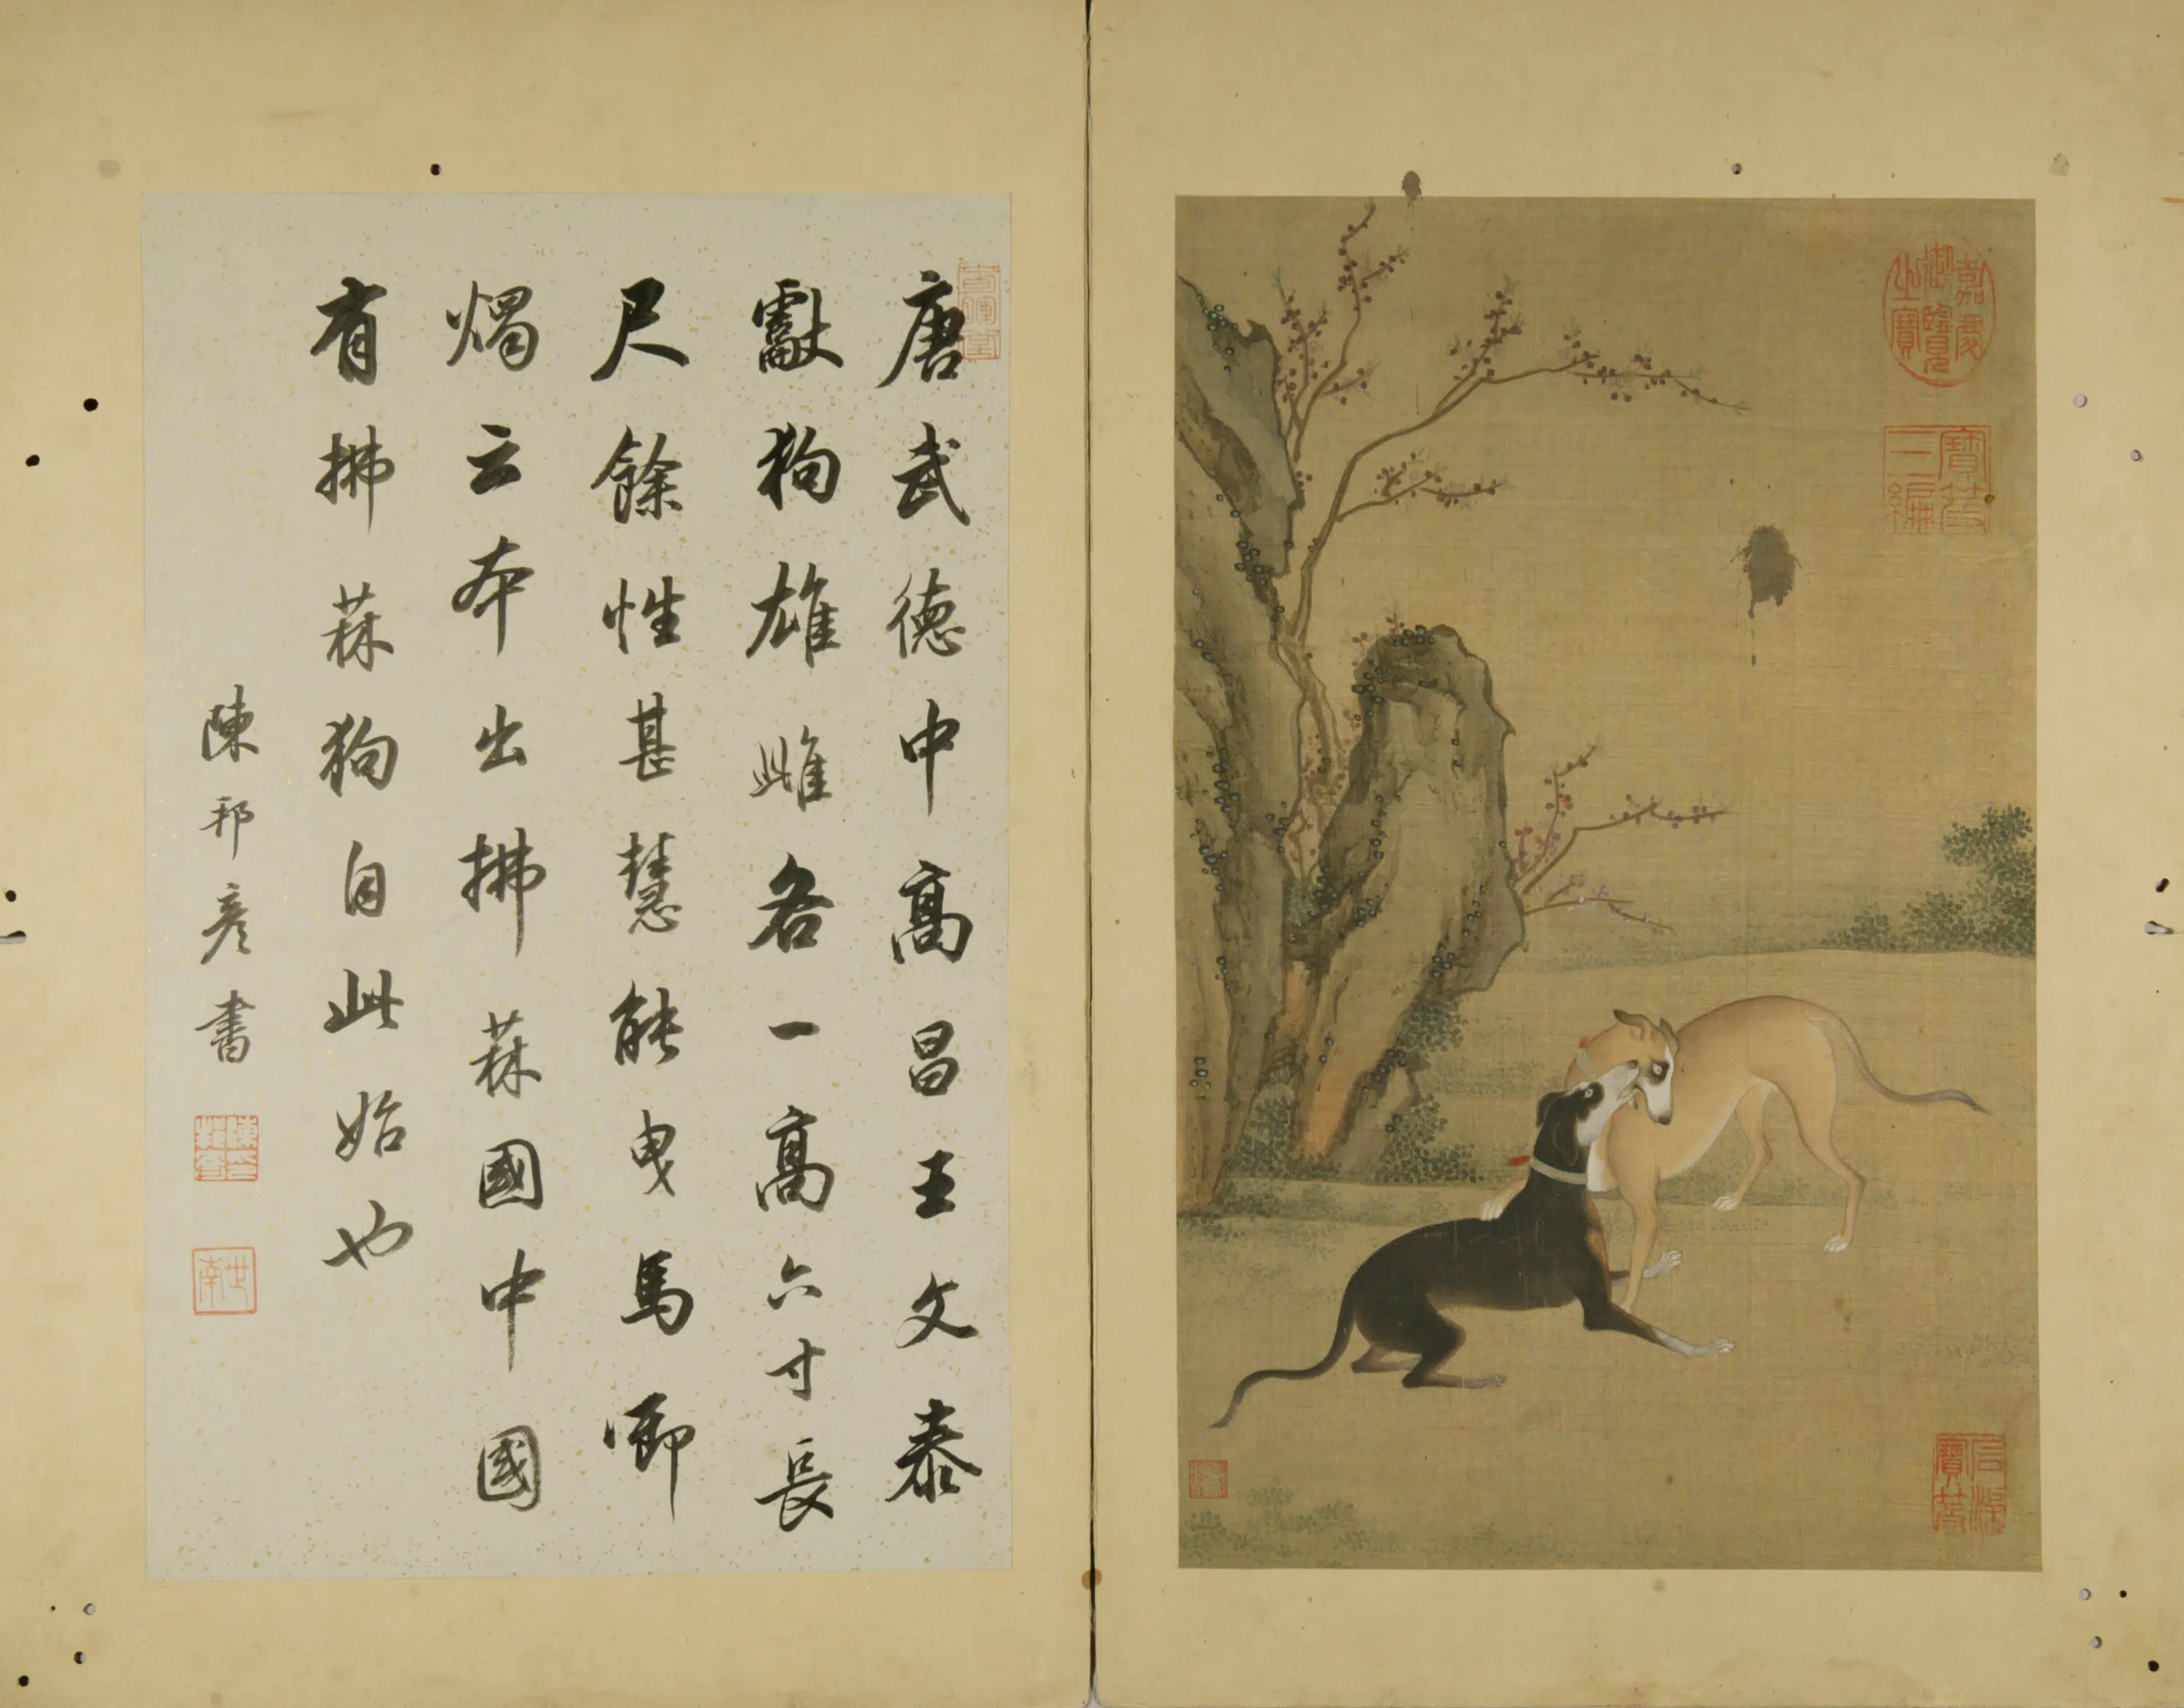 唐武德中高昌王文泰
獻狗雄雌各一高六寸長
尺餘性甚慧能曳馬啣
燭云本出拂菻國中國
有拂菻狗自此始也
陳邦彥書
世南
嘉慶御覽之寶
寶笈三編
石渠寶笈